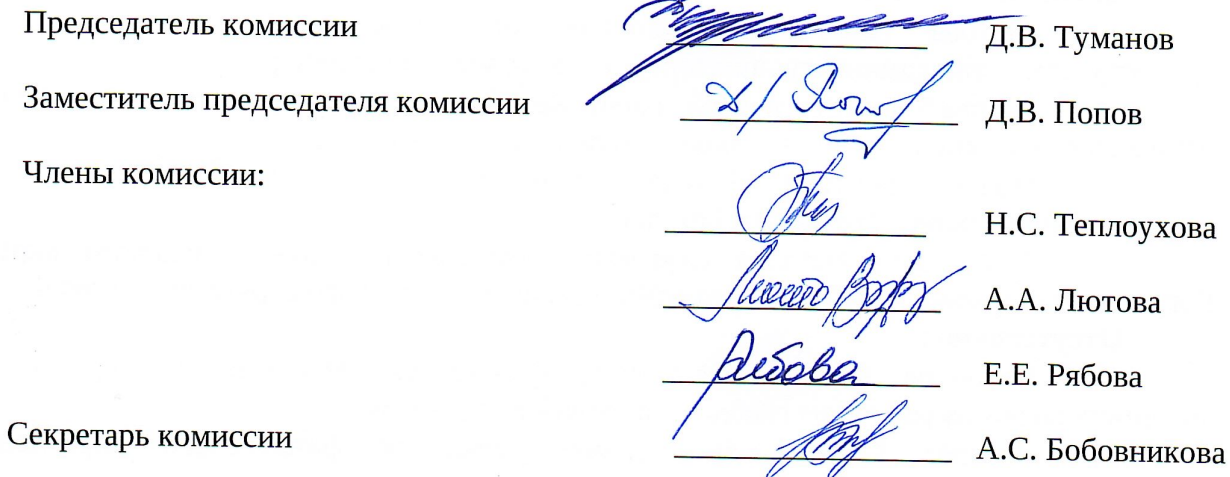 Председатель комиссии Д.В. Туманов
Заместитель председателя комиссии Д.В. Попов
Члены комиссии:
Н.С. Теплоухова
А.А. Лютова
Рябова Е.Е. Рябова
Секретарь комиссии А.С. Бобовникова